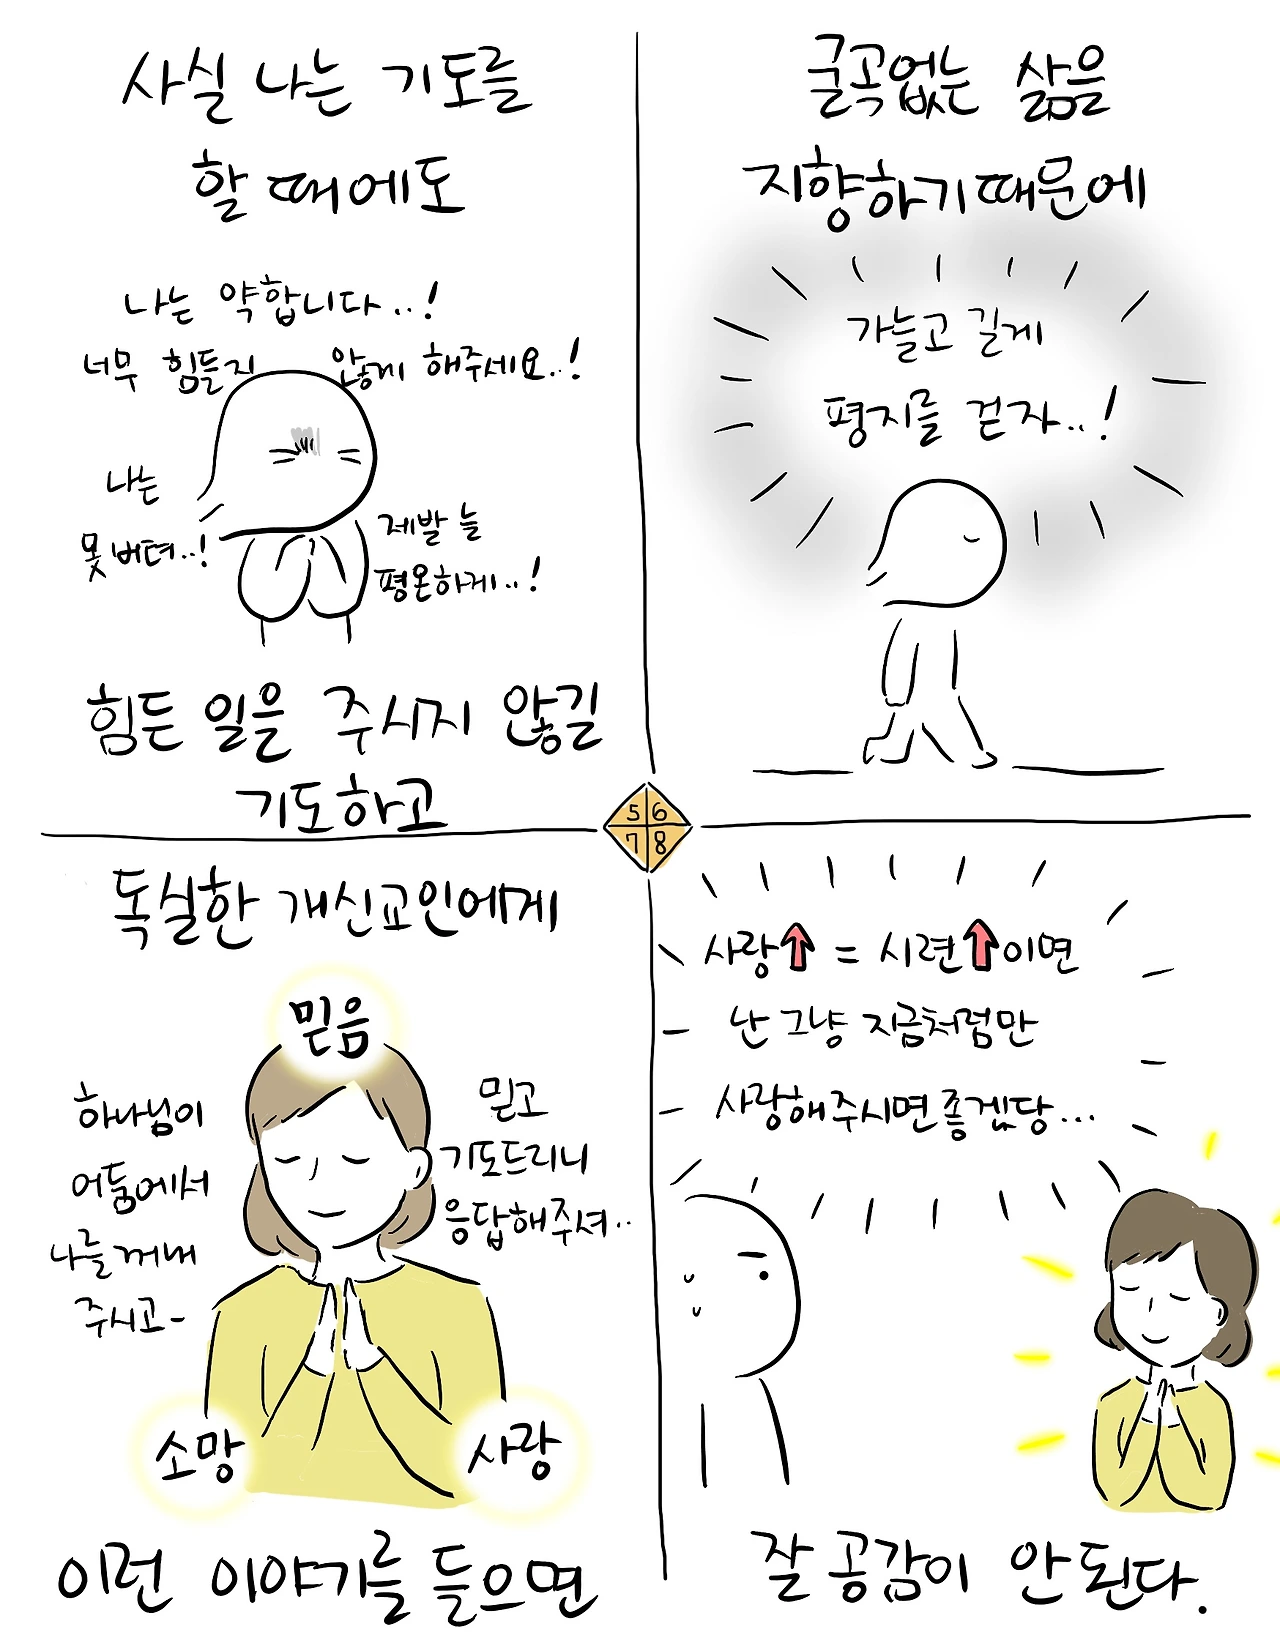 사실 나는 기도를
할 때에도
나는 약합니다..!
너무 힘들지 않게 해주세요..!
나는
못 버텨..!
제발 늘
평온하게..!
힘든 일을 주시지 않길
기도하고
굴곡없는 삶을
지향하기때문에
가늘고 길게
평지를 걷자..!
5 6
7 8
독실한 개신교인에게
믿음
하나님이
어둠에서
나를 꺼내
주시고-
믿고
기도드리니
응답해주셔..
소망
사랑
이런 이야기를 들으면
사랑⬆ = 시련⬆이면
난 그냥 지금처럼만
사랑해주시면좋겠당...
잘 공감이 안된다.